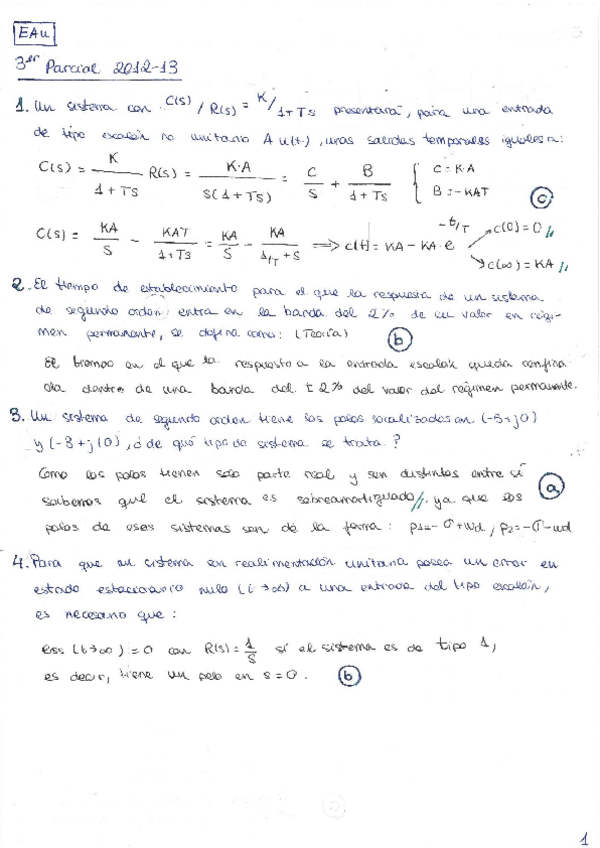 EAu
3er Parcial 2012-13
1. Un sistema con C(s)/R(s) = K/1+Ts presentará, para una entrada
de tipo escalón no unitario A u(t), unas salidas temporales iguales a:
C(s) = K/(1+Ts) R(s) = K·A/(s(1+Ts)) = C/s + B/(1+Ts) { C = K·A
B = -KAT
c
C(s) = KA/s - KAT/(1+Ts) = KA/s - KA/(1/T+s) ⟹ c(t) = KA - KA·e^(-t/T) → c(0) = 0 //
→ c(∞) = KA //
2. El tiempo de establecimiento para el que la respuesta de un sistema
de segundo orden, entra en la banda del 2% de su valor en régi-
men permanente, se define como: (Teoría) b
El tiempo en el que la respuesta a la entrada escalón queda confina-
da dentro de una banda del ± 2% del valor del régimen permanente.
3. Un sistema de segundo orden tiene los polos localizados en (-5+j0)
y (-3+j0), ¿de qué tipo de sistema se trata?
Como los polos tienen solo parte real y son distintos entre sí
sabemos que el sistema es sobreamortiguado // ya que los a
polos de esos sistemas son de la forma: p1=-σ+wd, p2=-σ-wd
4. Para que un sistema en realimentación unitaria posea un error en
estado estacionario nulo (t→∞) a una entrada del tipo escalón,
es necesario que:
ess (t→∞) = 0 con R(s) = 1/s si el sistema es de tipo 1,
es decir, tiene un polo en s=0. b
1